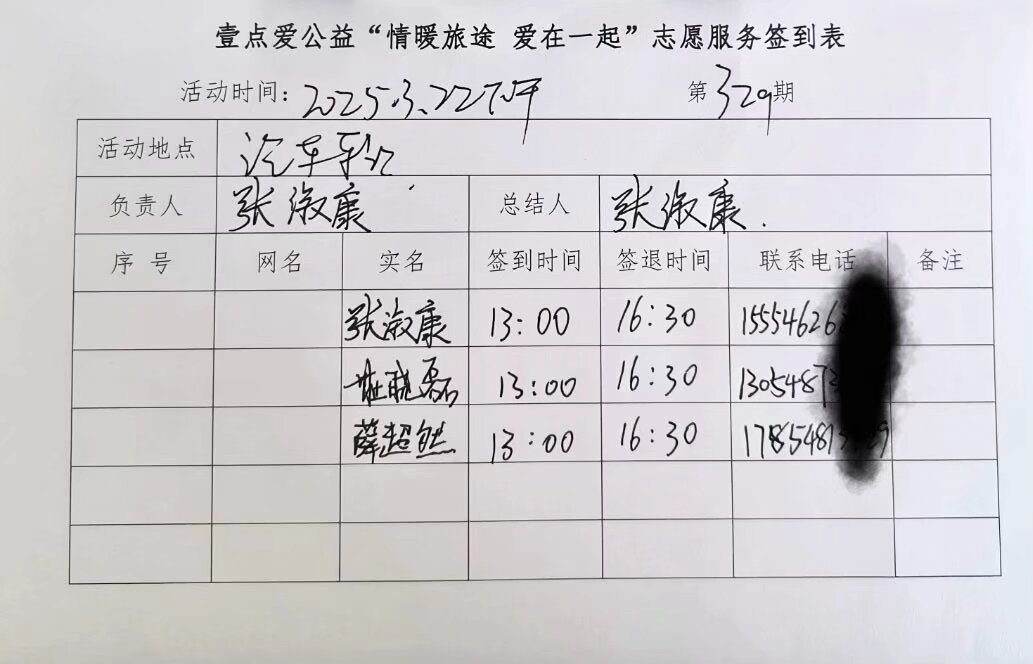 壹点爱公益“情暖旅途 爱在一起”志愿服务签到表
活动时间：2025.3.22下午 第329期
活动地点 汽车站
负责人 张淑康 总结人 张淑康.
序号 网名 实名 签到时间 签退时间 联系电话 备注
张淑康 13:00 16:30 15554626
晓磊 13:00 16:30 13054873
薛超然 13:00 16:30 17854813